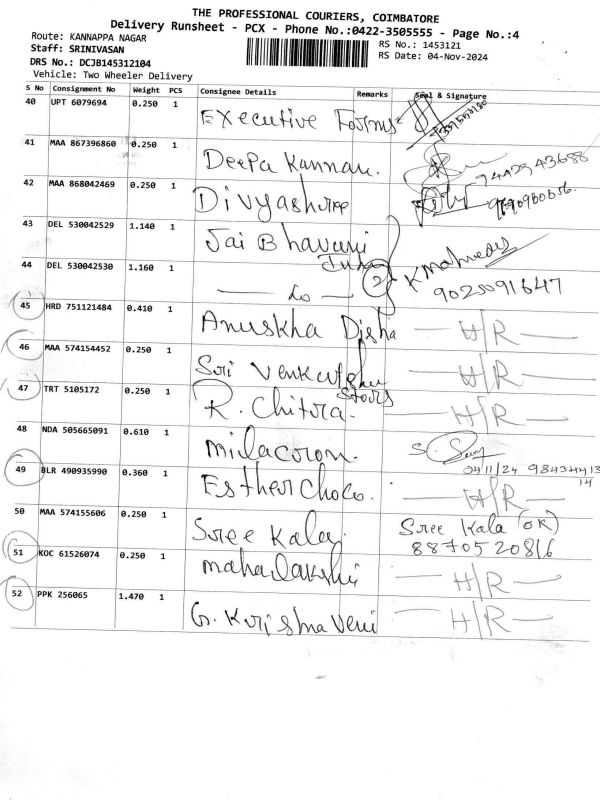 THE PROFESSIONAL COURIERS, COIMBATORE
Delivery Runsheet - PCX - Phone No.:0422-3505555 - Page No.:4
Route: KANNAPPA NAGAR RS No.: 1453121
Staff: SRINIVASAN RS Date: 04-Nov-2024
DRS No.: DCJB145312104
Vehicle: Two Wheeler Delivery
S No Consignment No Weight PCS Consignee Details Remarks Seal & Signature
40 UPT 6079694 0.250 1 Executive Forms
41 MAA 867396860 0.250 1 Deepa Kannan.
42 MAA 868042469 0.250 1 Divyashree
43 DEL 530042529 1.140 1 Jai Bhavani
44 DEL 530042530 1.160 1 — Do — 2 9025091647
45 HRD 751121484 0.410 1 Anuskha Disha — H/R —
46 MAA 574154452 0.250 1 Sri — H/R —
Stors
47 TRT 5105172 0.250 1 R. Chitra. — H/R —
48 NDA 505665091 0.610 1 milacron.
04/11/24
49 BLR 490935990 0.360 1 Esther Choco. — H/R —
50 MAA 574155606 0.250 1 Sree Kala Sree Kala (OR)
8870520816
51 KOC 61526074 0.250 1 mahalakshi — H/R —
52 PPK 256065 1.470 1 G. Krishnaveni — H/R —